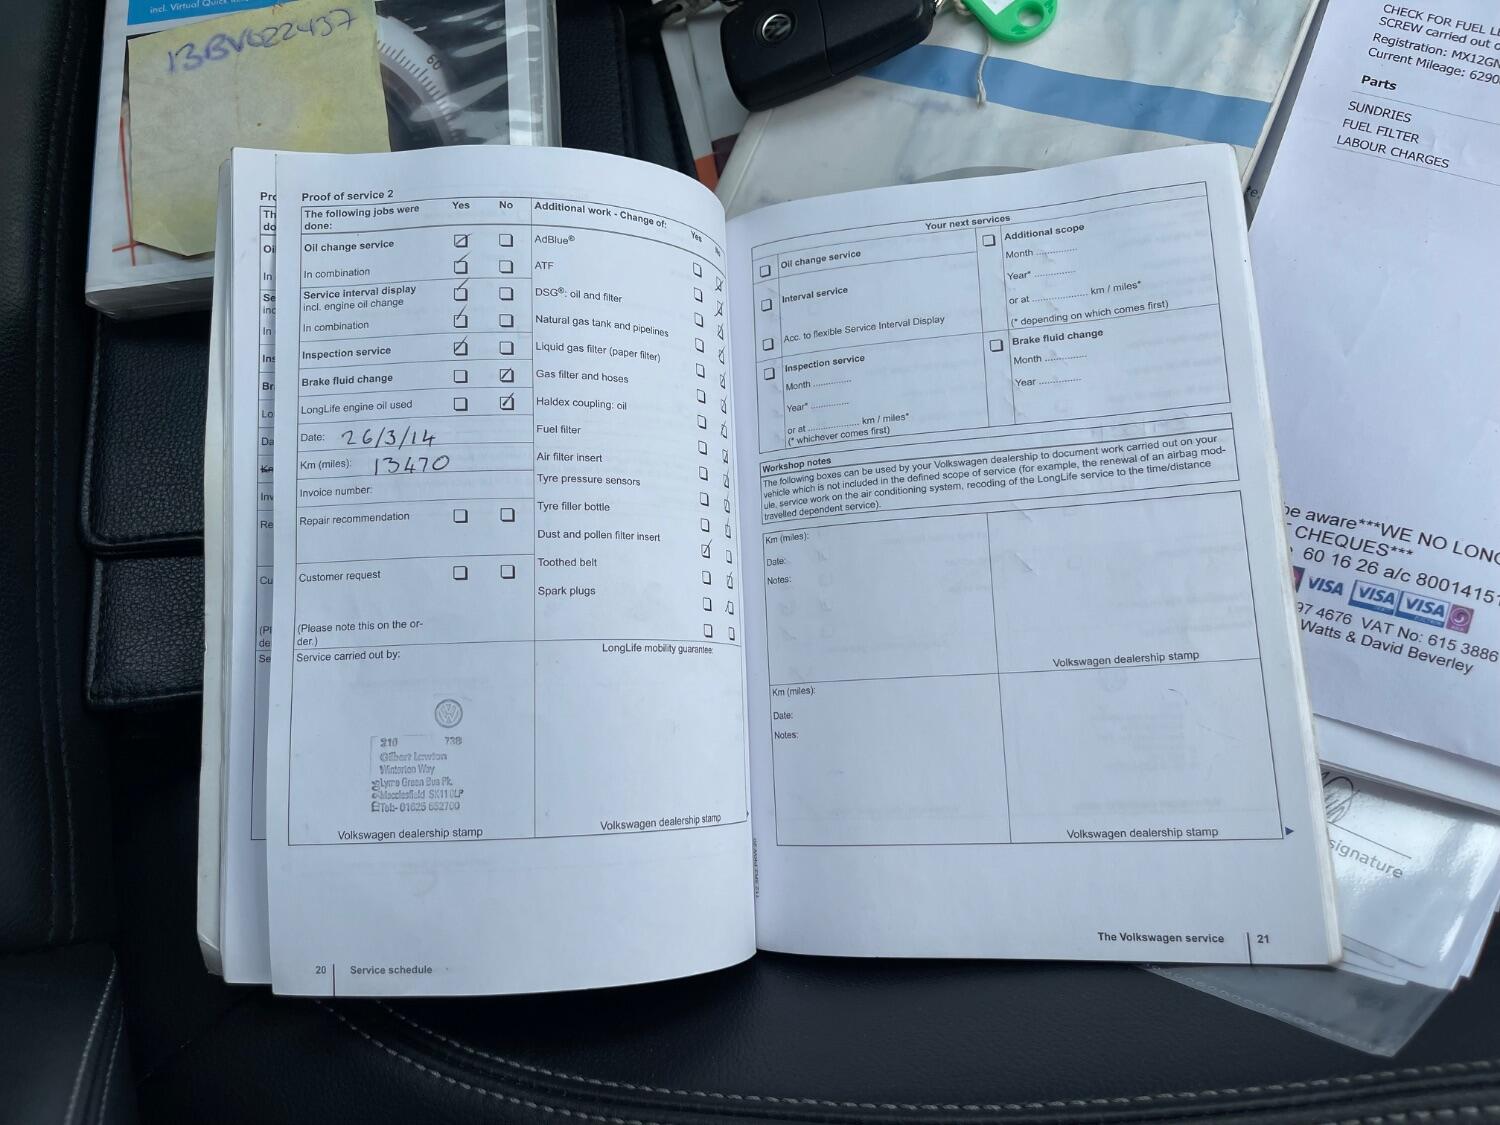 incl. Virtual Quick
13BV622437
60
CHECK FOR FUEL
SCREW carried out
Registration: MX12GN
Current Mileage: 6290
Parts
SUNDRIES
FUEL FILTER
LABOUR CHARGES
Proof of service 2
The following jobs were done:
Yes No
Additional work - Change of:
Yes No
Oil change service
In combination
Service interval display
incl. engine oil change
In combination
Inspection service
Brake fluid change
LongLife engine oil used
Date: 26/3/14
Km (miles): 13470
Invoice number:
Repair recommendation
Customer request
(Please note this on the or-
der.)
Service carried out by:
210 738
Gilbert Lawton
Winterton Way
Lyme Green Bus Pk.
Macclesfield SK11 0LP
Tel:- 01625 652700
Volkswagen dealership stamp
AdBlue®
ATF
DSG®: oil and filter
Natural gas tank and pipelines
Liquid gas filter (paper filter)
Gas filter and hoses
Haldex coupling: oil
Fuel filter
Air filter insert
Tyre pressure sensors
Tyre filler bottle
Dust and pollen filter insert
Toothed belt
Spark plugs
LongLife mobility guarantee:
Volkswagen dealership stamp
20 Service schedule
Your next services
Oil change service
Interval service
Acc. to flexible Service Interval Display
Inspection service
Month ..............
Year* ..............
or at .................... km / miles*
(* whichever comes first)
Additional scope
Month ..............
Year* ..............
or at .................... km / miles*
(* depending on which comes first)
Brake fluid change
Month ..............
Year ..............
Workshop notes
The following boxes can be used by your Volkswagen dealership to document work carried out on your
vehicle which is not included in the defined scope of service (for example, the renewal of an airbag mod-
ule, service work on the air conditioning system, recoding of the LongLife service to the time/distance
travelled dependent service).
Km (miles):
Date:
Notes:
Volkswagen dealership stamp
Km (miles):
Date:
Notes:
Volkswagen dealership stamp
The Volkswagen service 21
be aware***WE NO LONG
CHEQUES***
60 16 26 a/c 8001415
VISA VISA VISA
97 4676 VAT No: 615 3886
Watts & David Beverley
signature